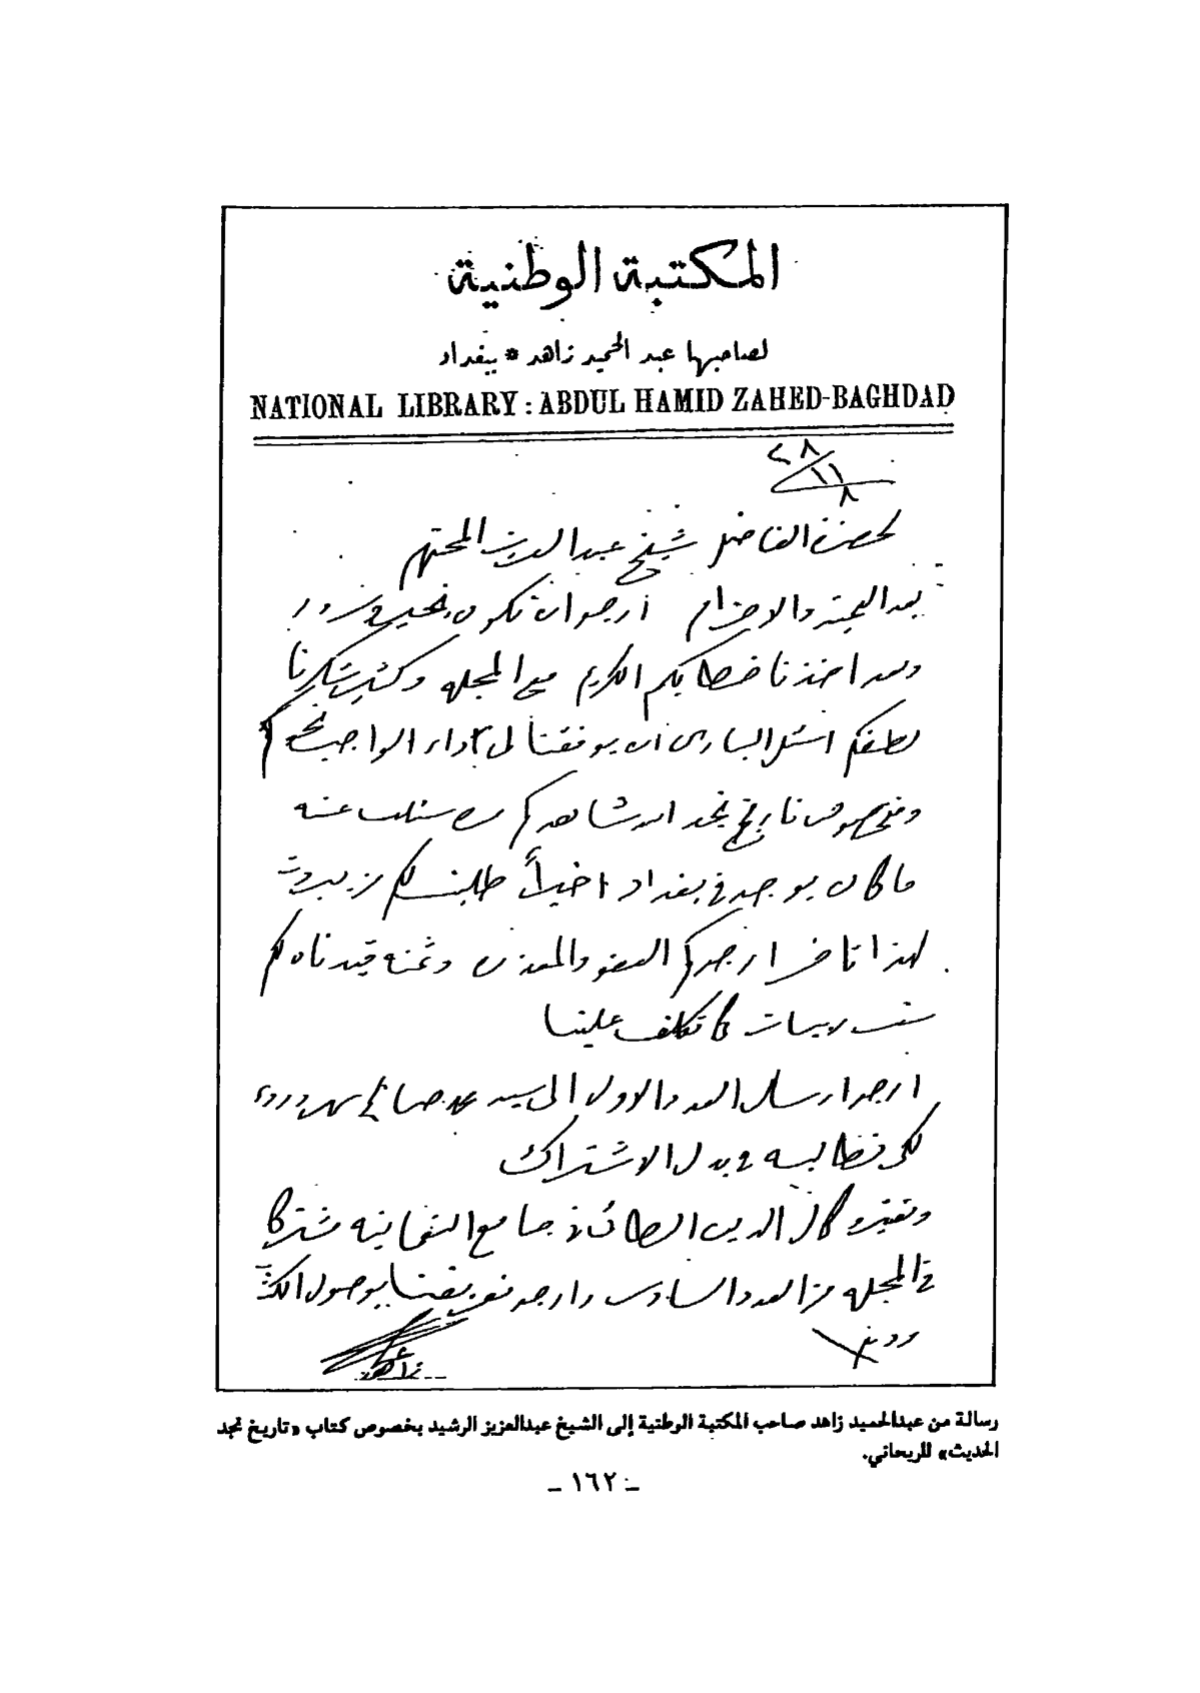 المكتبة الوطنية
لصاحبها عبد الحميد زاهد * ببغداد
NATIONAL LIBRARY : ABDUL HAMID ZAHED-BAGHDAD
٢٨
١١
٨
لحضرة الفاضل شيخ عبدالعزيز المحترم
بعد التحية والاحترام ارجو ان تكون بخير وسرور
وبعد اخذنا خطابكم الكريم مع المجله وكثير شكرنا
لطفكم اسئل الباري ان يوفقنا لأداء الواجب نحوكم
وبخصوص تاريخ نجد شاهدكم سئلت عنه
ما كان يوجد في بغداد اخيراً طلبته لكم من بيروت
لهذا تأخر ارجوكم العفو والمعذرة وثمنه قيدناه لكم
ست ربيات كما تكلف علينا
ارجو ارسال العدد الاول الى سيد محمد صالح سهروردي
لكي نطالبه في بدل الاشتراك
وتعتبرو كمال الدين الطائي في جامع النعمانيه مشتركا
في المجله من العدد السادس وارجو تعريفنا بوصول الكتب
ودمتم
زاهد
رسالة من عبدالحميد زاهد صاحب المكتبة الوطنية إلى الشيخ عبدالعزيز الرشيد بخصوص كتاب «تاريخ نجد
الحديث» للريحاني.
ـ ١٦٢ ـ